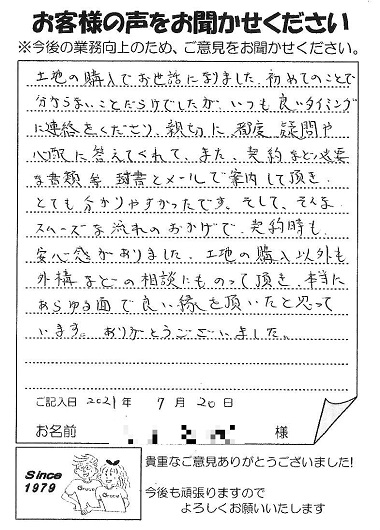 お客様の声をお聞かせください
※今後の業務向上のため、ご意見をお聞かせください。
土地の購入でお世話になりました。初めてのことで
分からないことだらけでしたが、いつも良いタイミング
に連絡をくださり、親切に、都度、疑問や
心配に答えてくれて、また、契約など必要
な書類等、封書とメールで案内して頂き、
とても分かりやすかったです。そして、そんな
スムーズな流れのおかげで、契約時も
安心感がありました。土地の購入以外も
外構などの相談にものって頂き、本当に
あらゆる面で良い縁を頂いたと思って
います。ありがとうございました。
ご記入日 2021年 7月 20日
お名前 様
Since
1979
貴重なご意見ありがとうございました!
今後も頑張りますので
よろしくお願いいたします